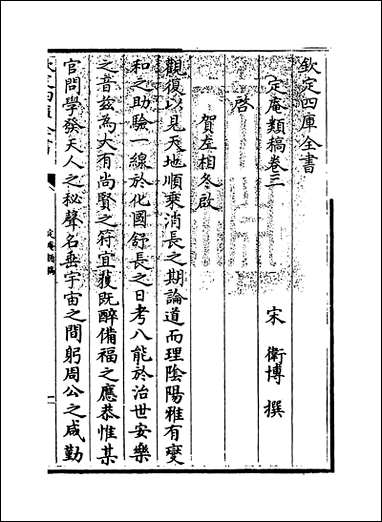 欽定四庫全書
定庵類稿卷三
宋 衛博 撰
啓
賀左相冬啟
觀復以見天地順乘消長之期論道而理陰陽雅有燮
和之助驗一線於化國舒長之日考八能於治世安樂
之音兹為大有尚賢之符宜獲既醉備福之應恭惟某
官問學發天人之秘聲名垂宇宙之間躬周公之咸勤
定庵類稿